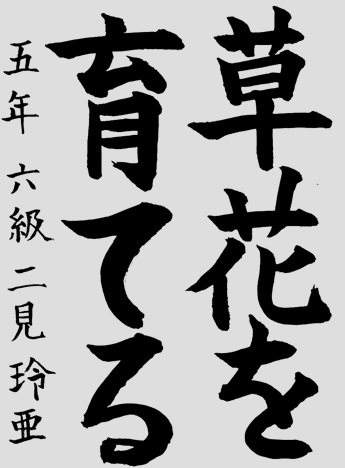 草花を
育てる
五年 六級 二見 玲亜